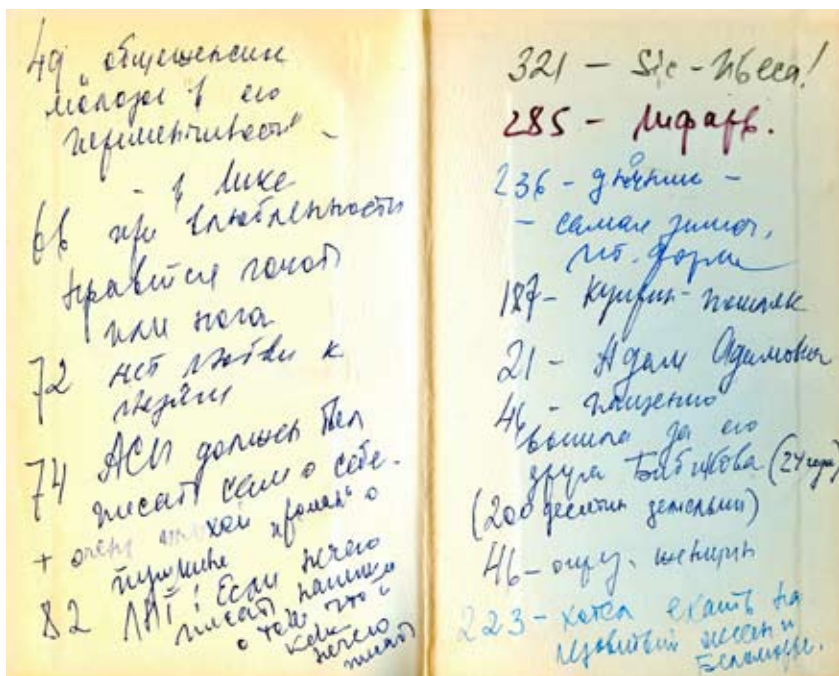 49 „общеженский
молодой в его
переменчивости" –
– в Лике
66 при влюбленности
нравится
или нога
72 нет любви к
людям
74 должен был
писать сам о себе.
+ очень плохой "роман" о
Пушкине
82 ЛНТ! Если нечего
писать напиши
о том что и
как
нечего
писать
321 – Sic – пьеса!
285 – Лифарь.
236 – дневник –
– самая
лит. форма
187 – Куприн – пошляк
21 – Адам Адамович
46 – Пащенко
вышла за его
друга Бибикова (24 года)
(200 десятин земельки)
46 – женщин
223 – хотел ехать на
и